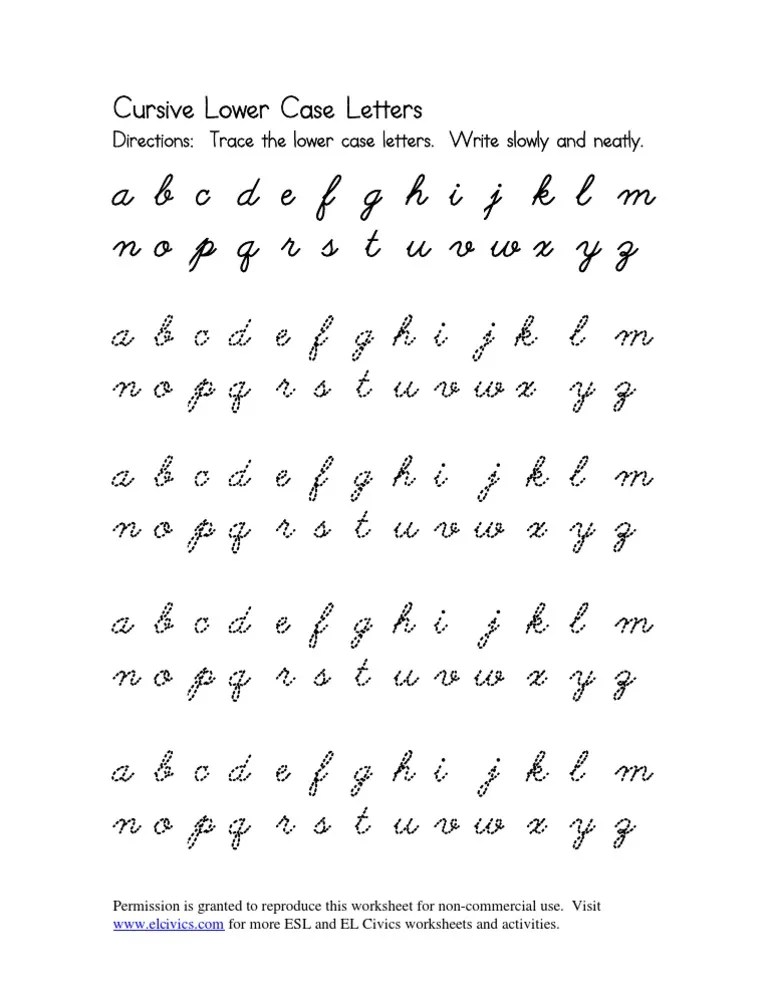 Cursive Lower Case Letters
Directions: Trace the lower case letters. Write slowly and neatly.
a b c d e f g h i j k l m
n o p q r s t u v w x y z
a b c d e f g h i j k l m
n o p q r s t u v w x y z
a b c d e f g h i j k l m
n o p q r s t u v w x y z
a b c d e f g h i j k l m
n o p q r s t u v w x y z
a b c d e f g h i j k l m
n o p q r s t u v w x y z
Permission is granted to reproduce this worksheet for non-commercial use. Visit
www.elcivics.com for more ESL and EL Civics worksheets and activities.